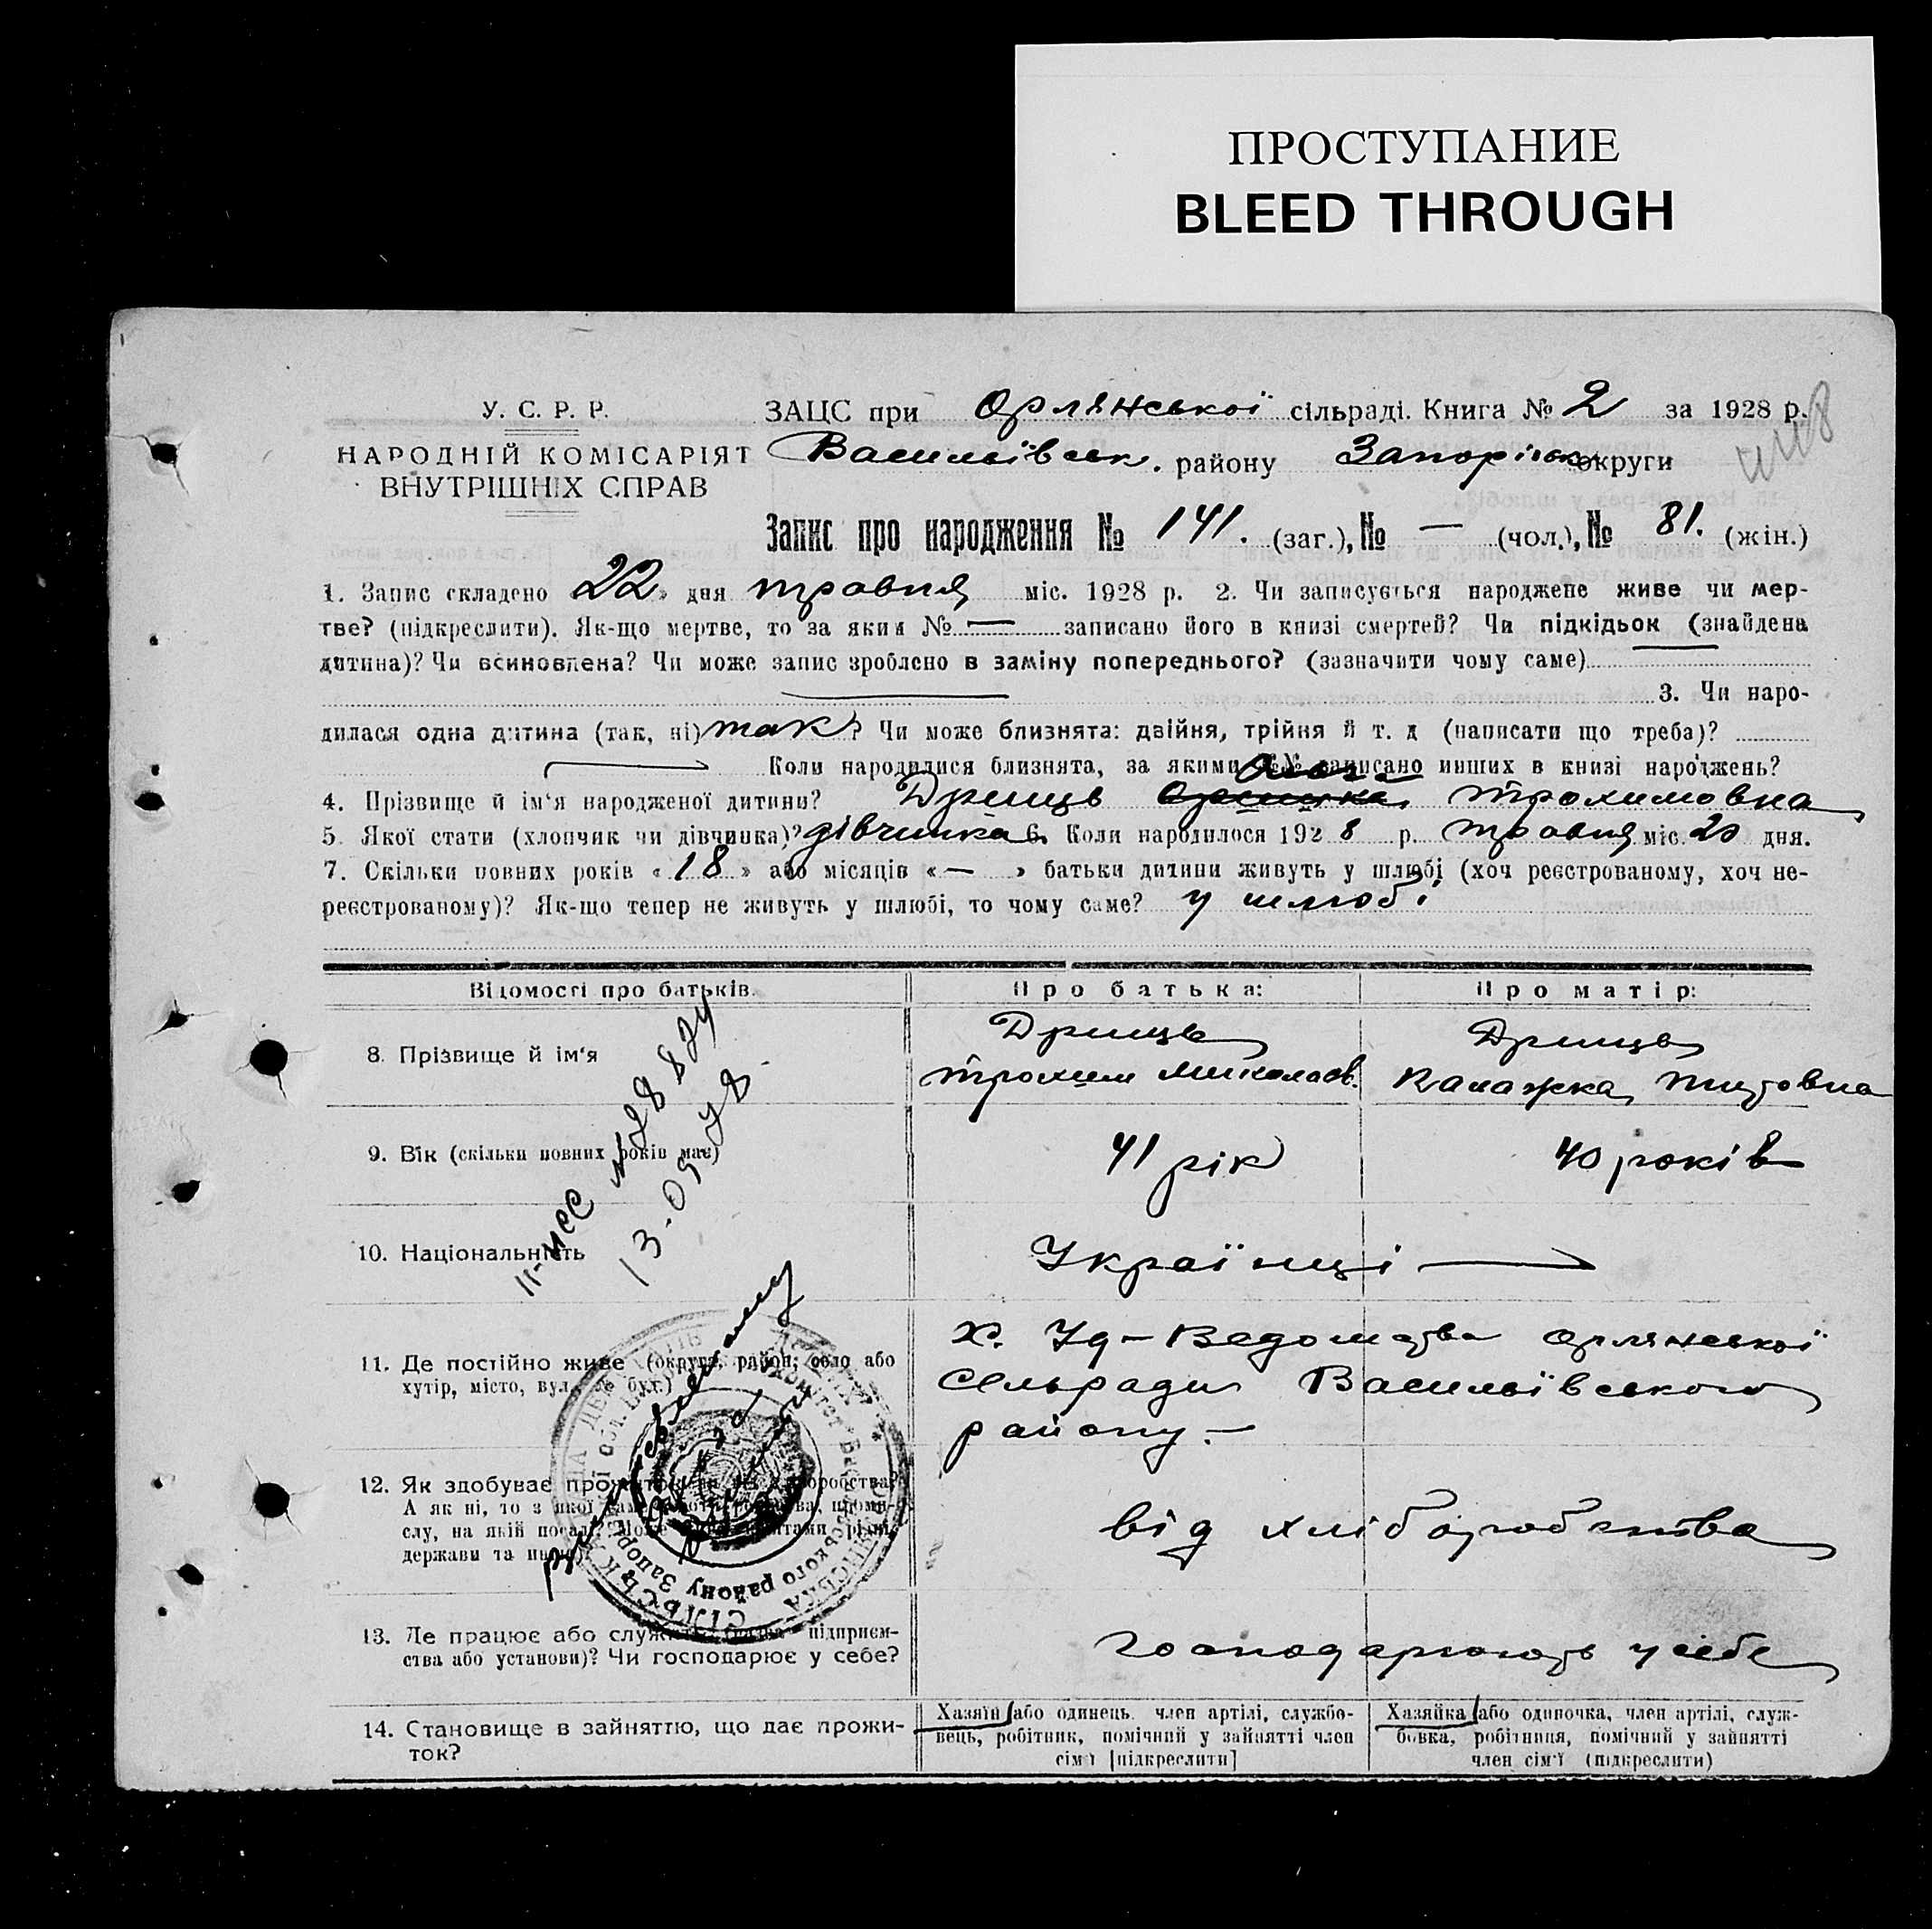 ПРОСТУПАНИЕ
BLEED THROUGH
У. С. Р. Р.
НАРОДНІЙ КОМІСАРІЯТ
ВНУТРІШНІХ СПРАВ
ЗАЦС при Орлянської сільраді. Книга № 2 за 1928 р.
Васильівськ. району Запорізьк округи
Запис про народження № 141. (заг.), № — (чол.), № 81. (жін.)
1. Запис складено 22 » дня травня міс. 1928 р. 2. Чи записується народжене живе чи мер-
тве? (підкреслити). Як-що мертве, то за яким № — записано його в книзі смертей? Чи підкідьок (знайдена
дитина)? Чи всиновлена? Чи може запис зроблено в заміну попереднього? (зазначити чому саме)
3. Чи наро-
дилася одна дитина (так, ні) так? Чи може близнята: двійня, трійня й т. д (написати що треба)?
Коли народилися близнята, за якими №№ записано инших в книзі народжень?
4. Прізвище й ім‘я народженої дитини? Дриць Трохимовна
5. Якої стати (хлопчик чи дівчинка)? дівчинка 6. Коли народилося 1928 р. травня міс. 20 дня.
7. Скільки повних років « 18 » або місяців « — » батьки дитини живуть у шлюбі (хоч реєстрованому, хоч не-
реєстрованому)? Як-що тепер не живуть у шлюбі, то чому саме? у шлюбі
Відомості про батьків.
Про батька:
Про матір:
8. Прізвище й ім‘я
Дриць
Трохим Миколаєв.
Дриць
Титовна
9. Вік (скільки повних років має)
41 рік
40 років
10. Національність
Українці —
11. Де постійно живе (округа, район, село або
хутір, місто, вул., буд.)
х. Орлянської
Сельради Васильівського
району. —
12. Як здобуває
А як ні, то з якої
слу, на якій посаді?
держави та
від хліборобства
13. Де працює або служить підприєм-
ства або установи)? Чи господарює у себе?
господарюють у себе
14. Становище в зайняттю, що дає прожи-
ток?
Хазяїн або одинець. член артілі, службо-
вець, робітник, помічний у зайнятті член
сім‘ї [підкреслити]
Хазяйка або одиночка, член артілі, служ-
бовка, робітниця, помічний у зайнятті
член сім‘ї (підкреслити)